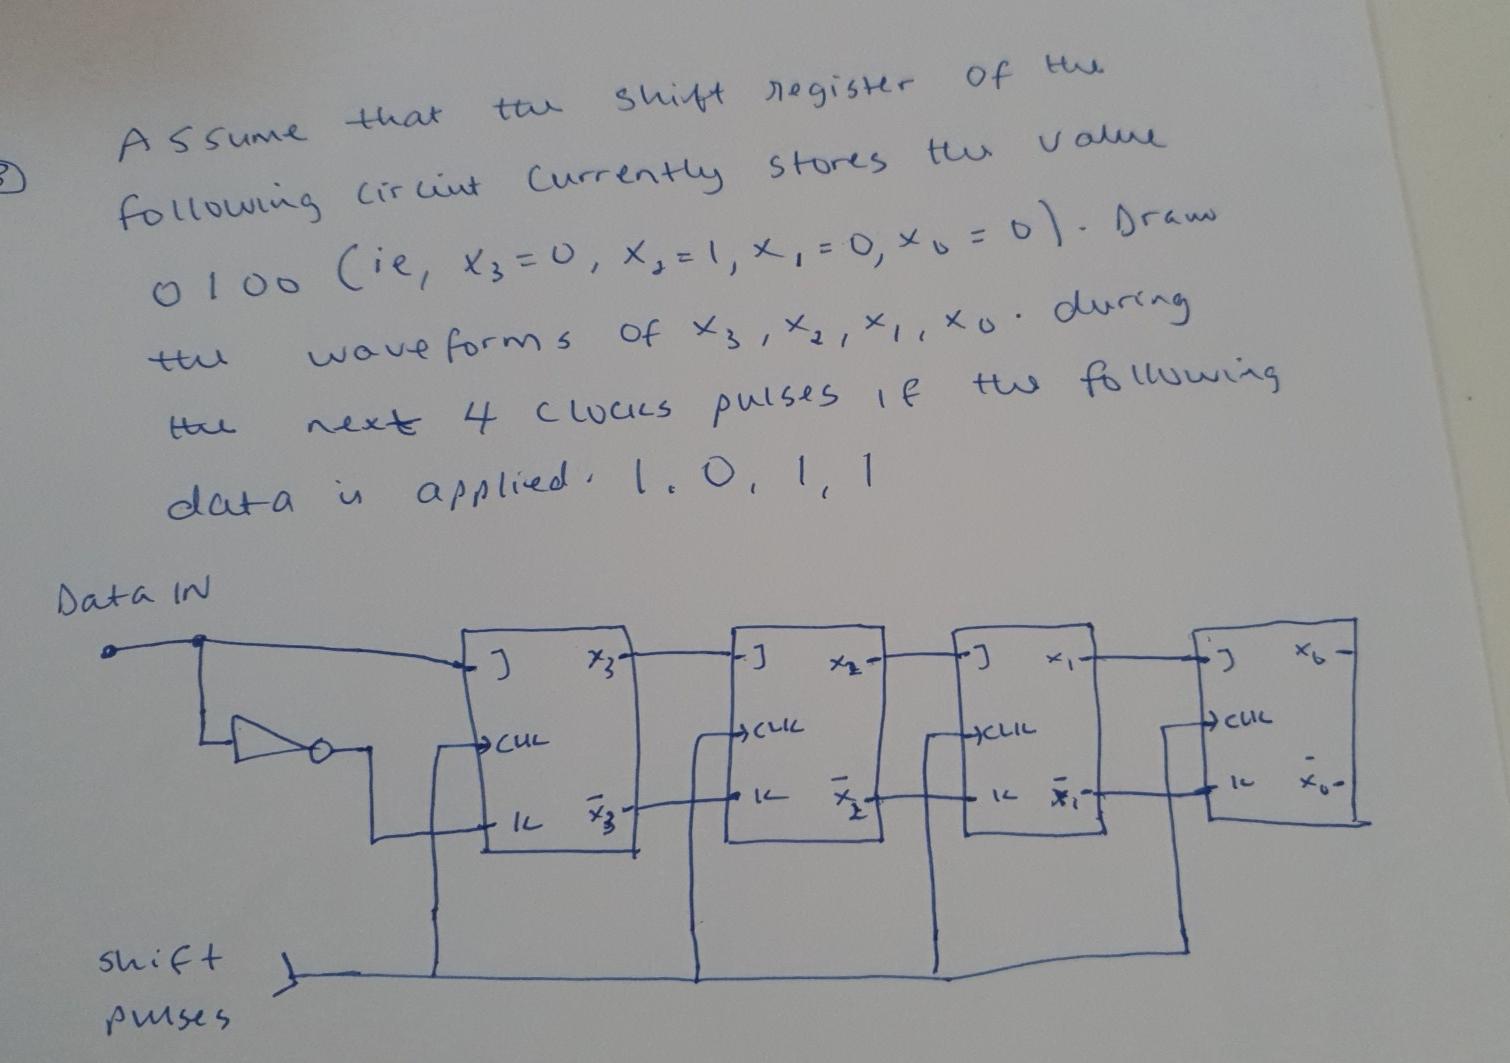 Assume that the shift register of the
following circiut currently stores the value
0100 (ie, X3=0, X2=1, X1=0, X0=0). Draw
the waveforms of X3, X2, X1, X0. during
the next 4 clocks pulses if the following
data is applied. 1. 0, 1, 1
Data IN
J X3 J X2 J X1 J X0
CLK CLK CLK CLK
K X̄3 K X̄2 K X̄1 K X̄0
shift
pulses